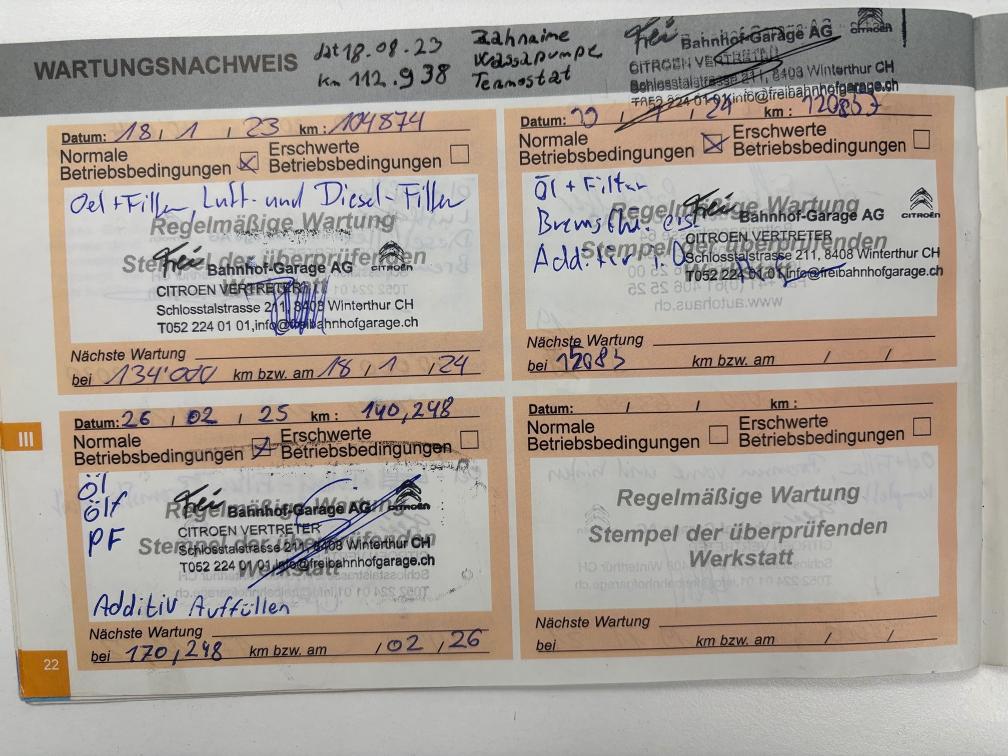 WARTUNGSNACHWEIS
18.08.23
km 112.938
Zahnrieme
Wassapumpe
Termostat
Frei Bahnhof-Garage AG CITROËN
CITROEN VERTRETER
Schlosstalstrasse 211, 8408 Winterthur CH
T052 224 01 01,info@freibahnhofgarage.ch
Datum: 18 / 1 / 23 km: 104874
Normale Betriebsbedingungen
Erschwerte Betriebsbedingungen
Oel+Filter, Luft- und Diesel-Filter
Regelmäßige Wartung
Stempel der überprüfenden
Werkstatt
Frei Bahnhof-Garage AG CITROËN
CITROEN VERTRETER
Schlosstalstrasse 211, 8408 Winterthur CH
T052 224 01 01,info@freibahnhofgarage.ch
Nächste Wartung
bei 134'000 km bzw. am 18 / 1 / 24
Datum: / / 24 km:
Normale Betriebsbedingungen
Erschwerte Betriebsbedingungen
Öl + Filter
Regelmäßige Wartung
Stempel der überprüfenden
Frei Bahnhof-Garage AG CITROËN
CITROEN VERTRETER
Schlosstalstrasse 211, 8408 Winterthur CH
T052 224 01 01,info@freibahnhofgarage.ch
Nächste Wartung
bei km bzw. am / /
Datum: 26 / 02 / 25 km: 140,248
Normale Betriebsbedingungen
Erschwerte Betriebsbedingungen
Öl
Ölf
PF
Regelmäßige Wartung
Stempel der überprüfenden
Werkstatt
Frei Bahnhof-Garage AG CITROËN
CITROEN VERTRETER
Schlosstalstrasse 211, 8408 Winterthur CH
T052 224 01 01,info@freibahnhofgarage.ch
Additiv Auffüllen
Nächste Wartung
bei 170,248 km bzw. am / 02 / 26
Datum: / / km:
Normale Betriebsbedingungen
Erschwerte Betriebsbedingungen
Regelmäßige Wartung
Stempel der überprüfenden
Werkstatt
Nächste Wartung
bei km bzw. am / /
III
22